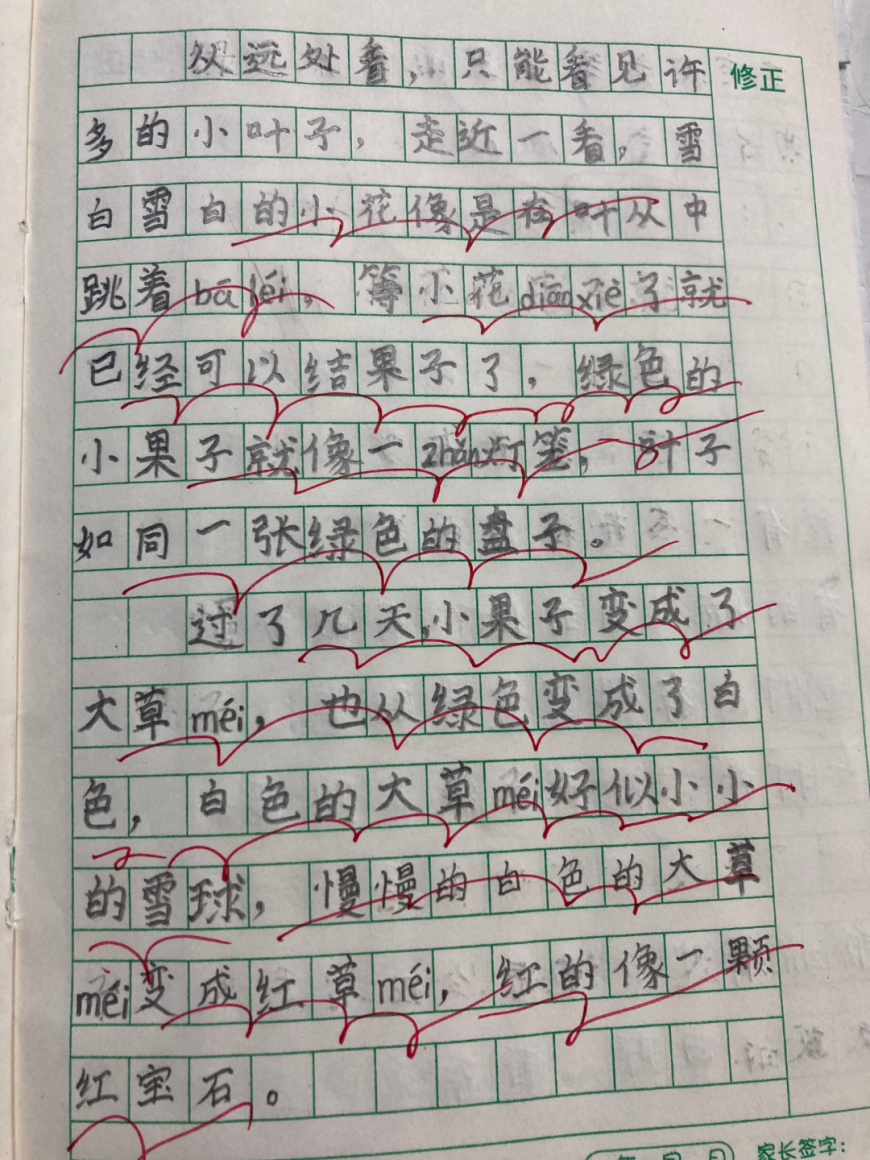 从远处看，只能看见许 修正
多的小叶子，走近一看，雪
白雪白的小花像是在叶从中
跳着bā léi，等小花diāo xiè了就
已经可以结果子了，绿色的
小果子就像一zhǎn灯笼，叶子
如同一张绿色的盘子。
过了几天，小果子变成了
大草méi，也从绿色变成了白
色，白色的大草méi好似小小
的雪球，慢慢的白色的大草
méi变成红草méi，红的像一颗
红宝石。
年 月 日 家长签字：